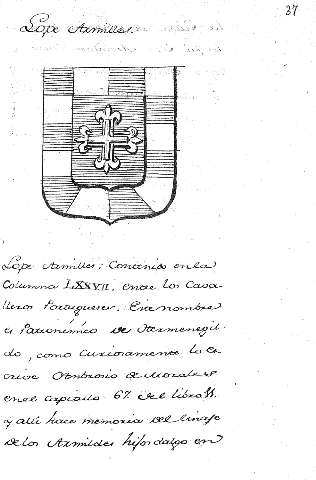 37
Lope Armilles.
Lope Armilles: Contenido en la
Columna LXXVII. entre los Cava-
lleros Portugueses. Este nombre
es Patronímico de Hermenegil-
do, como Curiosamente lo es-
crive Ambrosio de Morales
en el capitulo 67. del libro
y alli hace memoria del linaje
de los Armildes hijosdalgo en